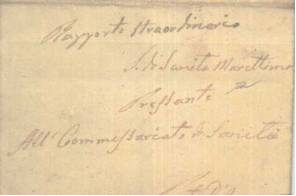 Rapporto Straordinario
di Sanità Marittima
Pressante
All' Commessariato di Sanità